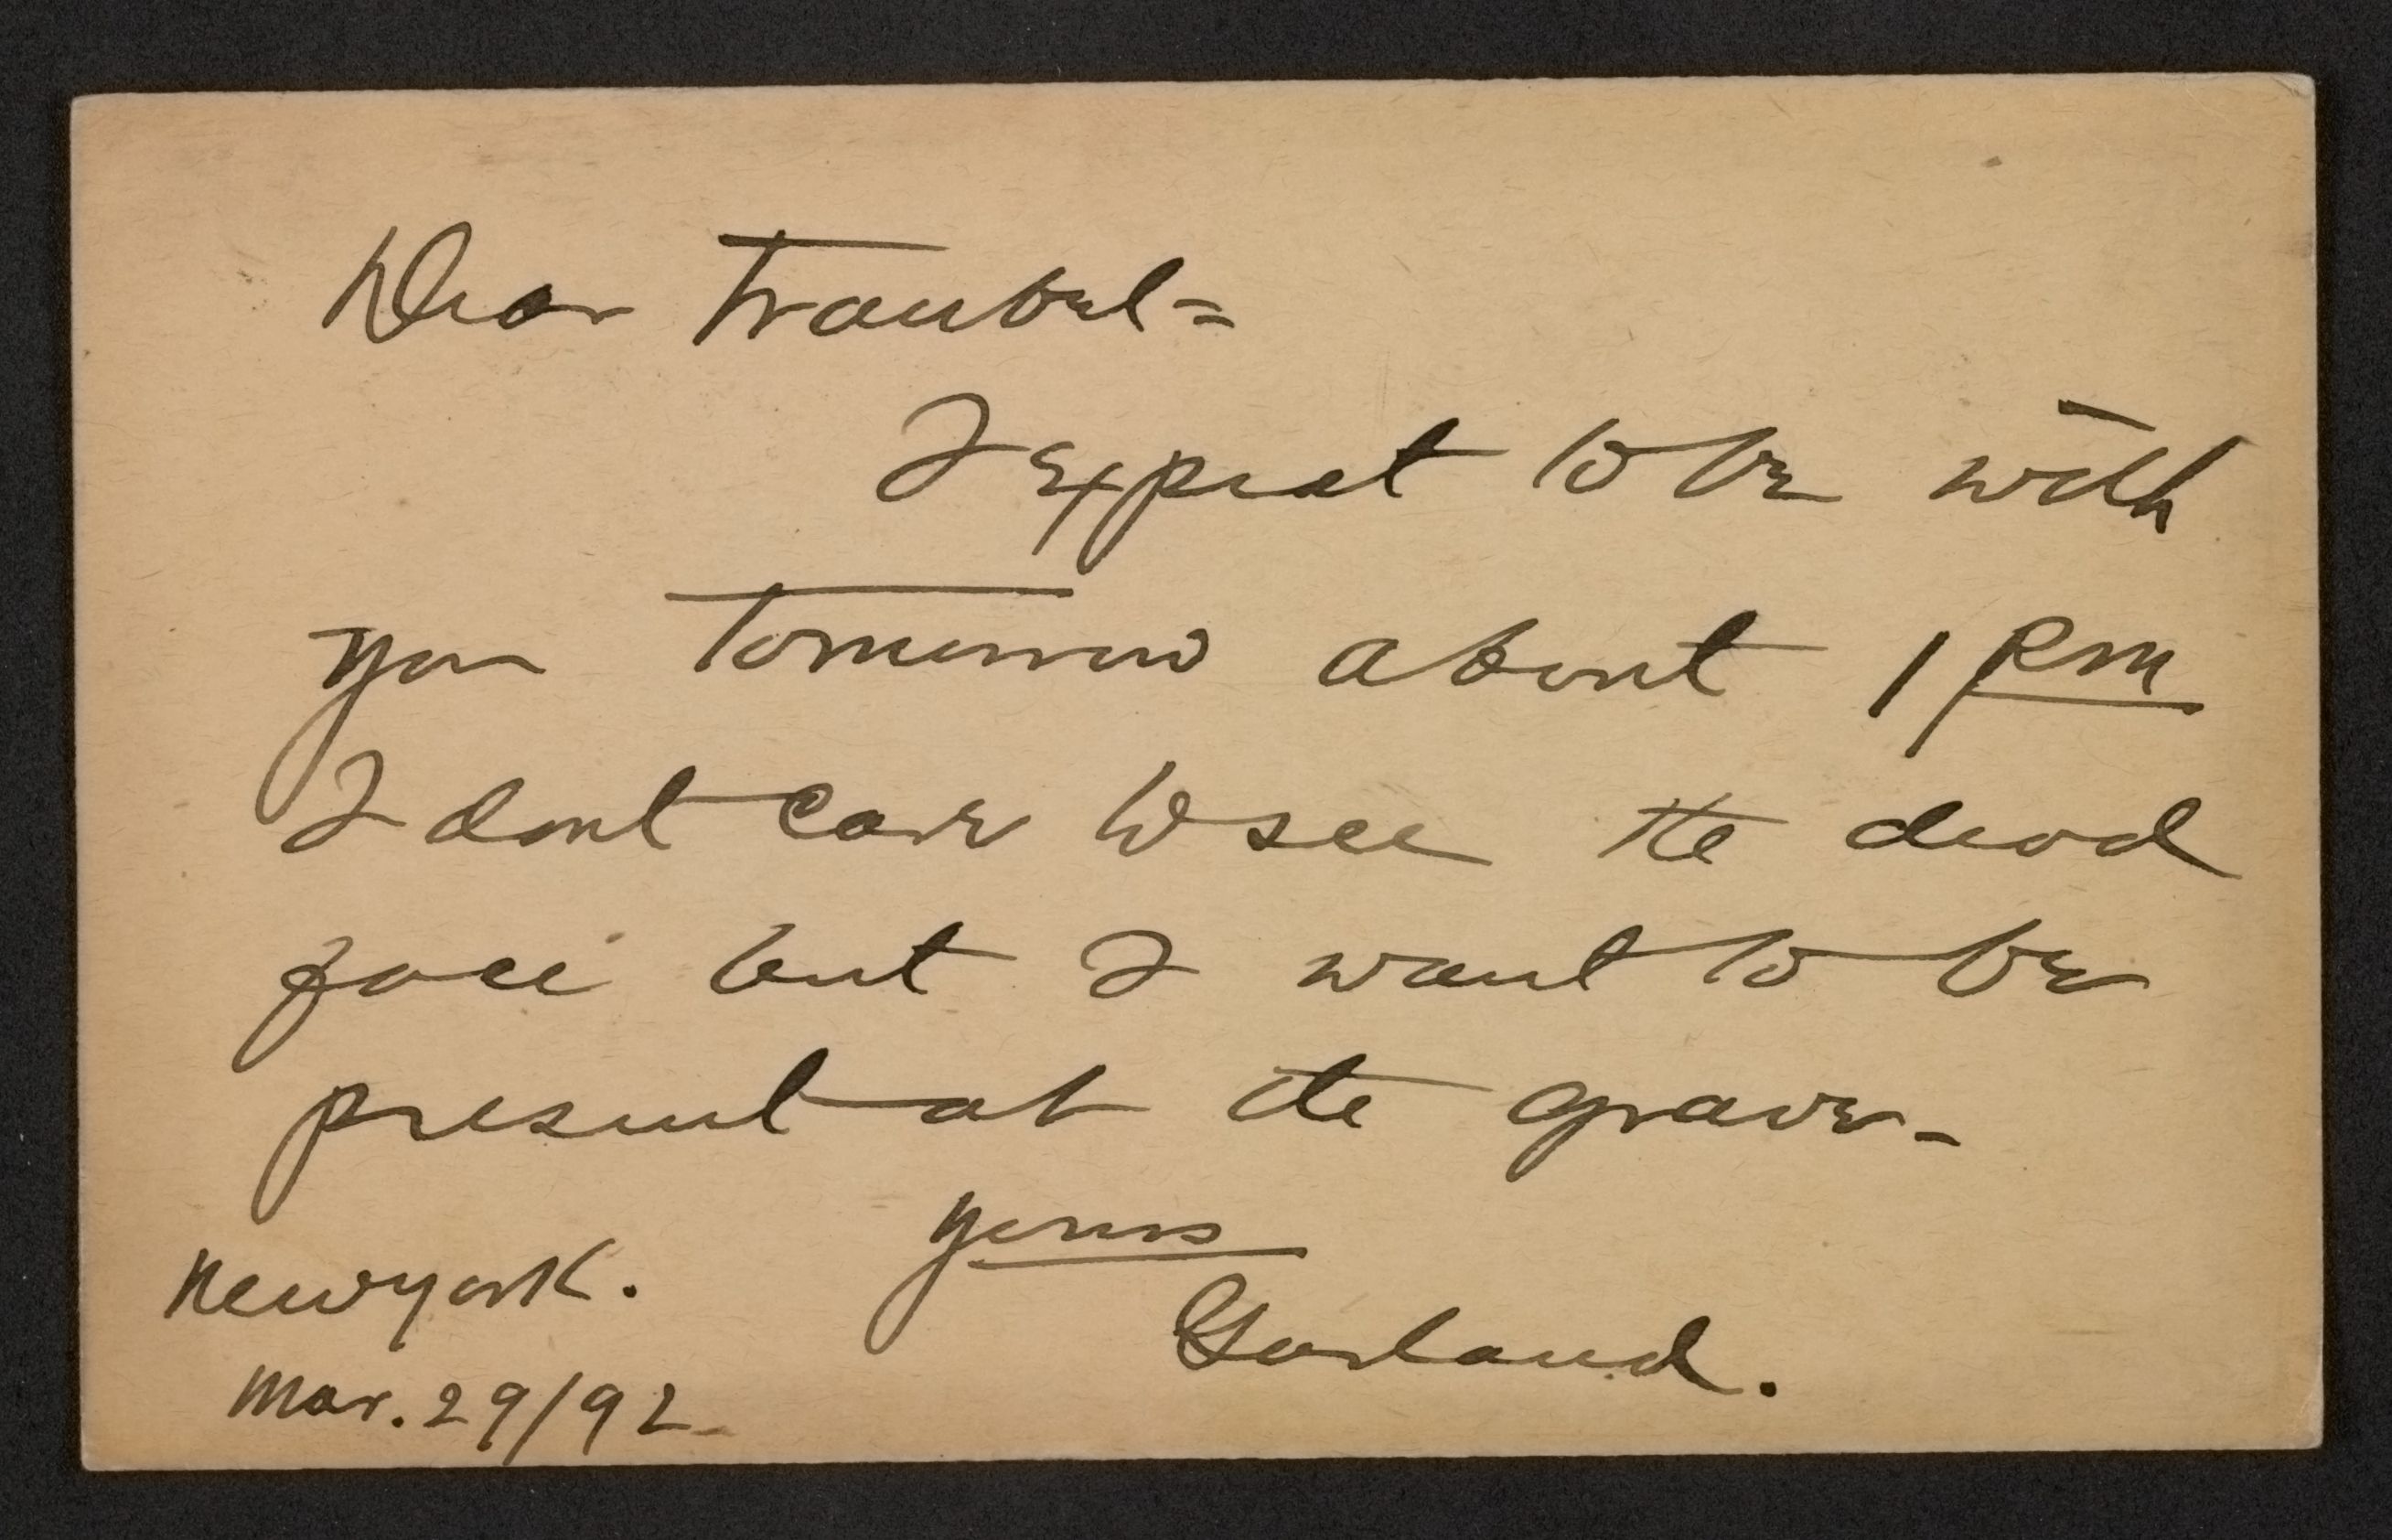 Dear Traubel=
I expect to be with
you tomorrow about 1 PM
I dont care to see the dead
face but I want to be
present at the grave-
yours
Garland.
New york.
Mar. 29/92